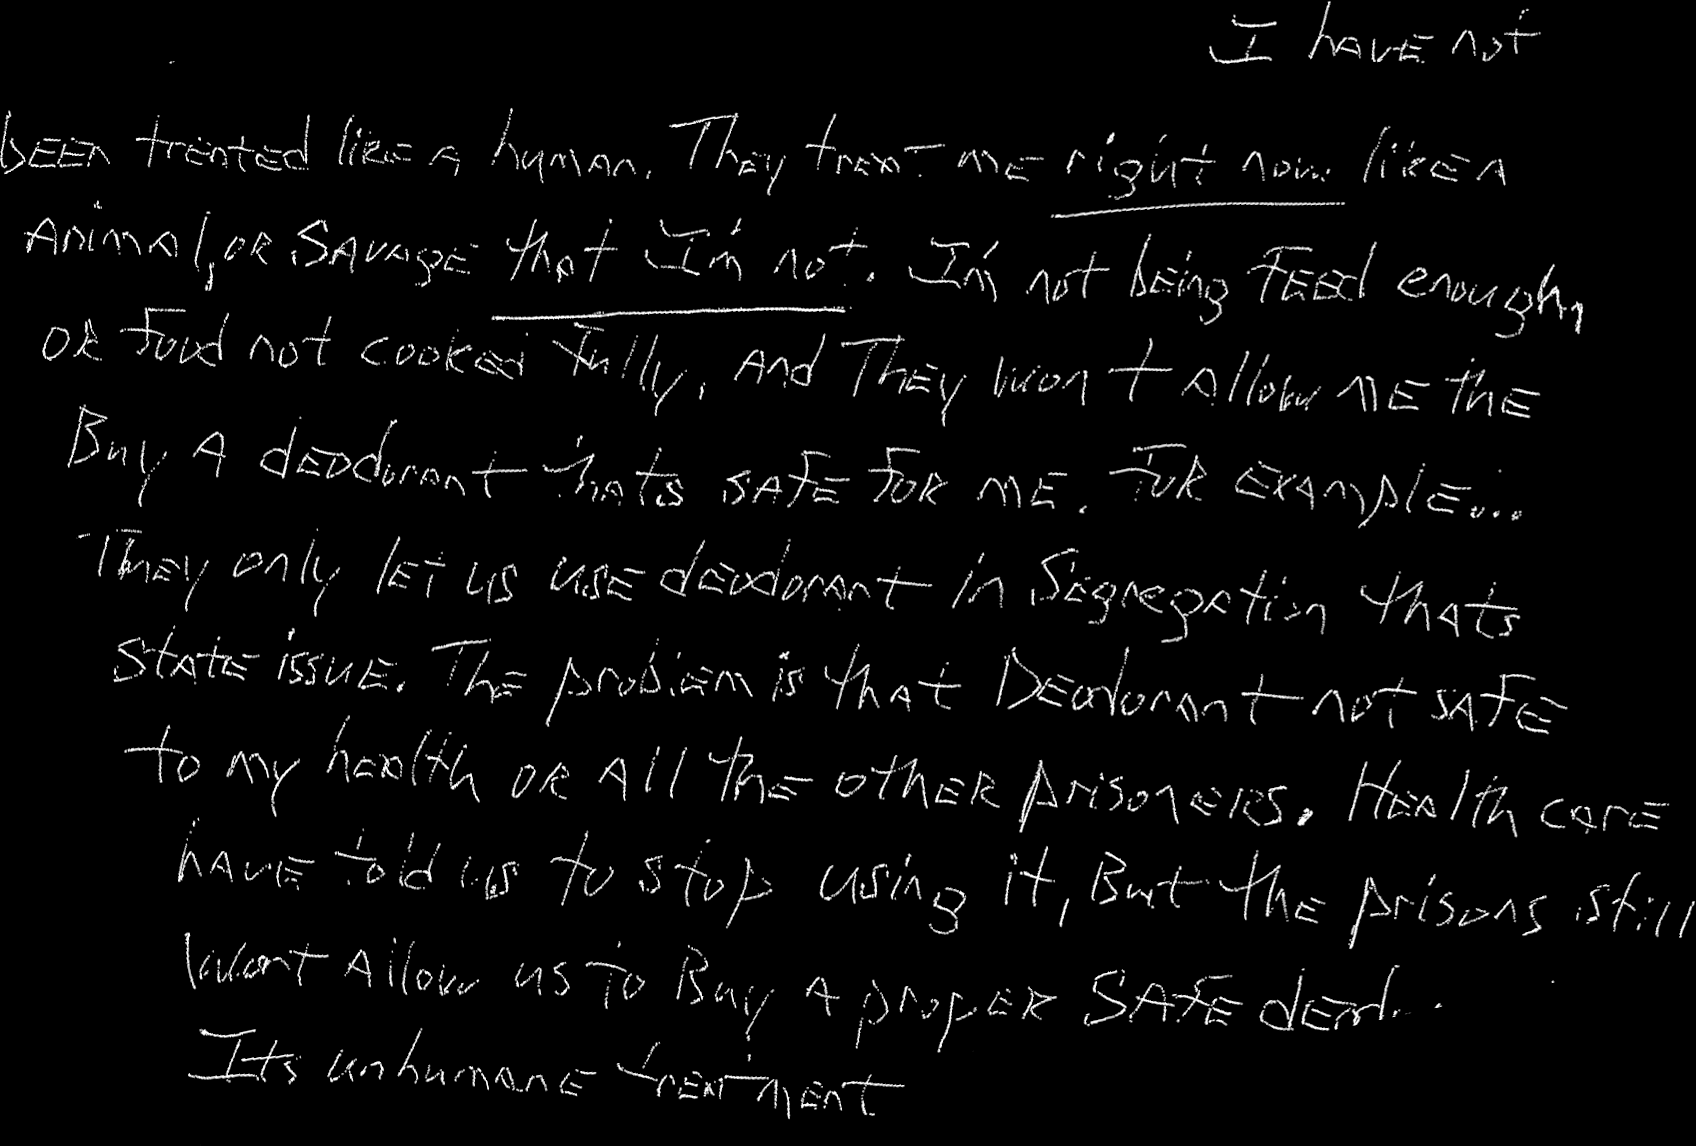 I have not
been treated like a human. They treat me right now like a
Animal, or Savage that I'm not. I'm not being Feed enough,
or food not cooked fully, And They won t allow me the
Buy A deodorant thats safe for me. For example...
They only let us use deodorant in Segregation thats
state issue. The problem is that Deodorant not safe
to my health or All the other prisoners. Health care
have told us to stop using it, But the prisons still
Wont Allow us to Buy A proper SAFE deod..
Its unhumane treatment